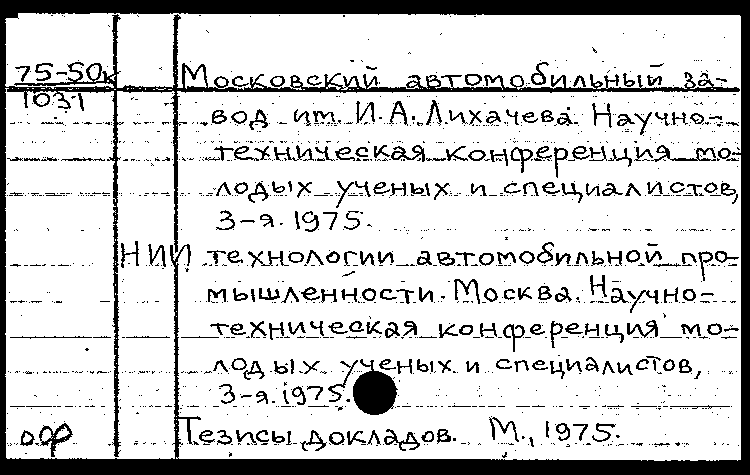 75-50к Московский автомобильный за-
1031
вод им. И.А. Лихачева. Научно-
техническая конференция мо-
лодых ученых и специалистов,
3-я. 1975.
НИИ технологии автомобильной про-
мышленности. Москва. Научно-
техническая конференция мо-
лодых ученых и специалистов,
3-я. 1975.
Тезисы докладов. М., 1975.